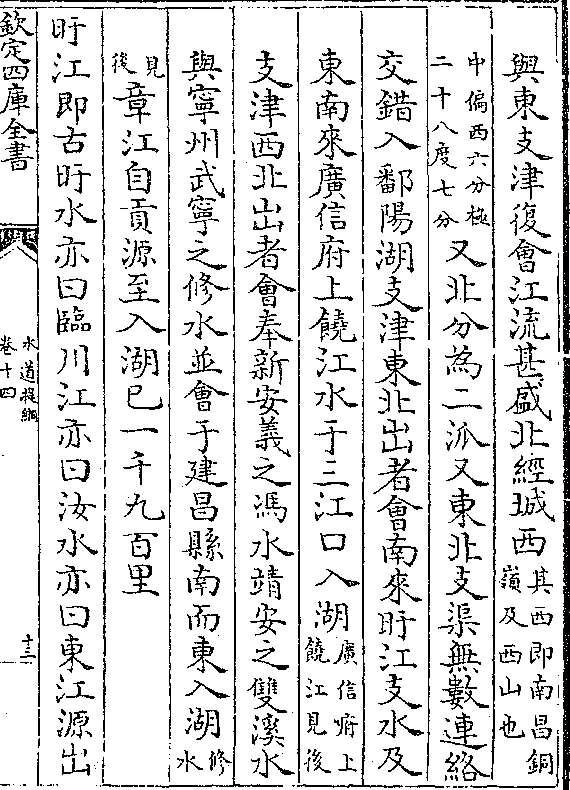 與東支津復會江流甚盛北經城西其西即南昌銅嶺及西山也
中偏西六分極二十八度七分又北分為二派又東北支渠無數連絡
交錯入鄱陽湖支津東北出者會南來盱江支水及
東南來廣信府上饒江水于三江口入湖廣信府上饒江見後
支津西北出者會奉新安義之馮水靖安之雙溪水
與寧州武寧之修水並會于建昌縣南而東入湖修水
見後章江自貢源至入湖巳一千九百里
盱江即古盱水亦曰臨川江亦曰汝水亦曰東江源出
欽定四庫全書
水道提綱
卷十四
十三